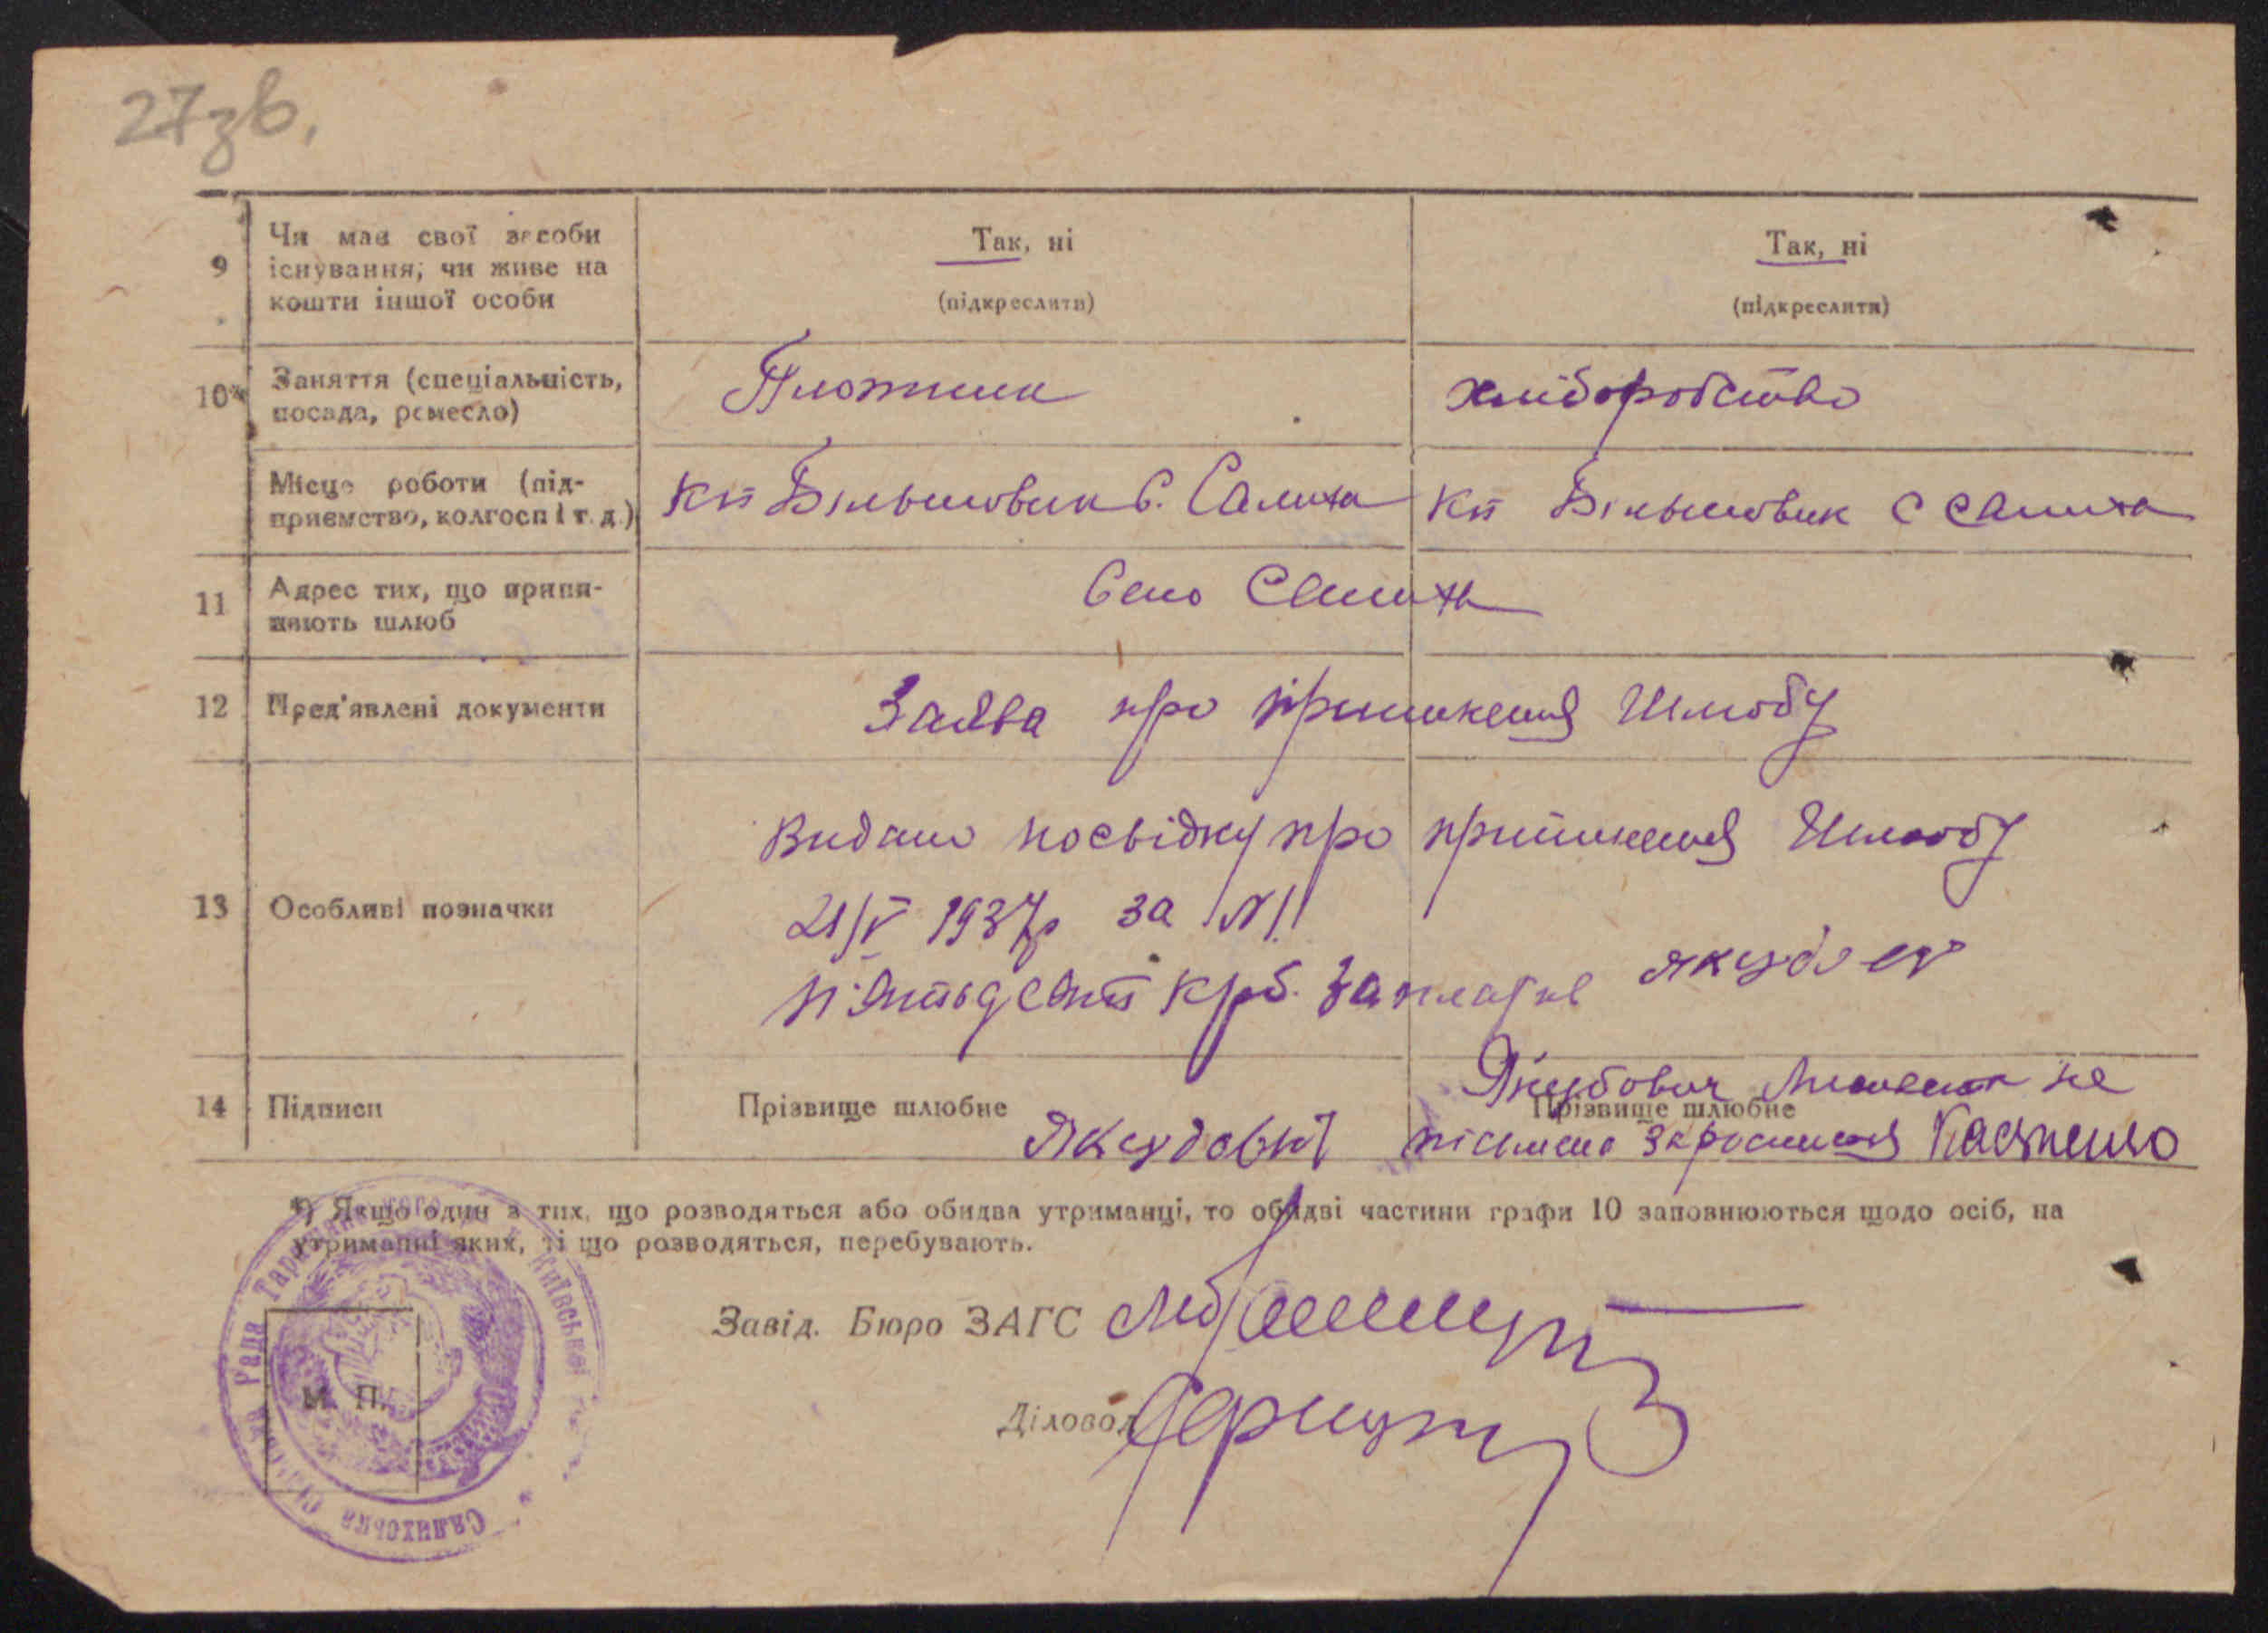 27зв.
9 Чи має свої засоби існування, чи живе на кошти іншої особи
Так, ні
(підкреслити)
Так, ні
(підкреслити)
10* Заняття (спеціальність, посада, ремесло)
Плотник
хліборобство
Місце роботи (підприємство, колгосп і т. д.)
Кп Більшовик с. Салиха
Кп Більшовик с Салиха
11 Адрес тих, що припиняють шлюб
Село Салиха
12 Пред'явлені документи
Заява про припинення Шлюбу
13 Особливі позначки
Видано посвідку про припинення Шлюбу
21/V 1937р за №1
п'ятьдесят крб.
14 Підписи
Прізвище шлюбне
Якубович
Прізвище шлюбне
Якубович не
письмена
*) Якщо один з тих, що розводяться або обидва утриманці, то обидві частини графи 10 заповнюються щодо осіб, на
утриманні яких, ті що розводяться, перебувають.
Завід. Бюро ЗАГС
Діловод
М. П.
Салиховська Сільська Рада